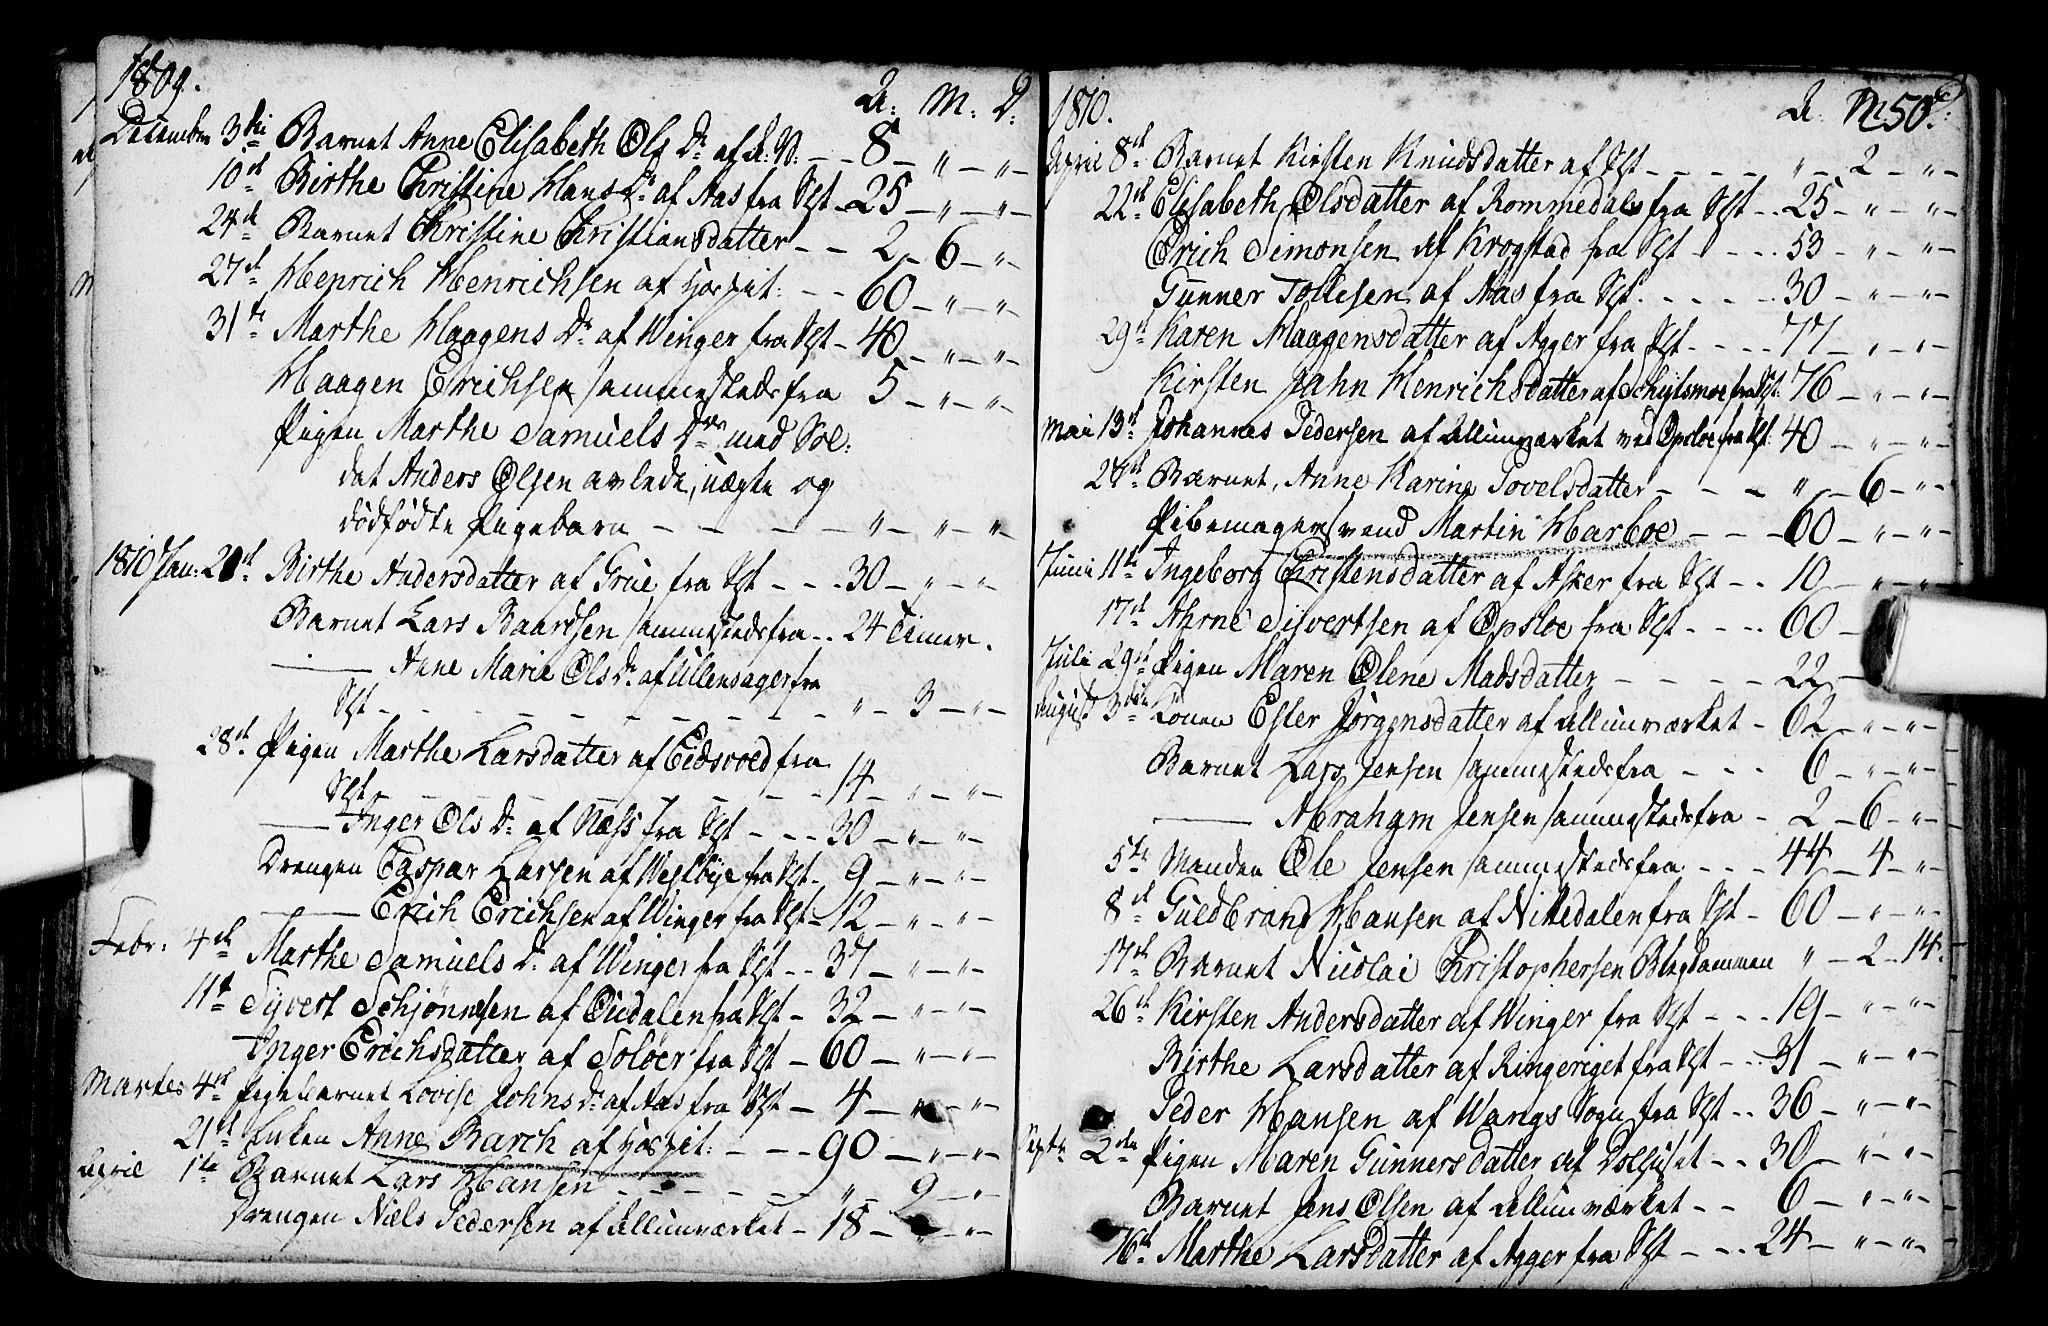 1809.
A: M: D:
December 3die Barnet Anne Elisabeth Ols Dr af A: V: - - 8 - " - " -
10de Birthe Christine Hans Dr af Aas fra Sgt - 25 - " - " -
24de Barnet Christine Christiansdatter - - 2 - 6 - " -
27de Henrich Henrichsen af Hospit: - - 60 - " - " -
31te Marthe Haagens Dr af Winger fra Sgt - 40 - " - " -
Haagen Erichsen sammestedsfra 5 - " - " -
Pigen Marthe Samuels Drs med Sol:
dat Anders Olsen avlede, uægte og
dödfödte Pigebarn - - - - " - " - "
1810 Jan: 21de Birthe Andersdatter af Grue fra Sgt - - - 30 - " - " -
Barnet Lars Baardsen sammestedsfra - - 24 Timer.
——— Anne Marie Ols Dr af Ullensager fra
Sgt - - - - - - - - - " - 3 - " -
28de Pigen Marthe Larsdatter af Eidsvold fra
Sgt - - - - - - - - 14 - " - " -
——— Inger Ols Dr af Næss fra Sgt - - - 30 - " - " -
Drengen Caspar Larsen af Westbye fra Sgt - 9 - " - " -
——— Erich Erichsen af Winger fra Sgt - 12 - " - " -
Febr: 4de Marthe Samuels Dr af Winger fra Sgt - - 37 - " - " -
11te Syvert Schjönnesen af Oudalen fra Sgt - 32 - " - " -
Inger Erichsdatter af Soloer fra Sgt - 60 - " - " -
Martes 4de Pigebarnet Lovise Johns Dr af Aas fra Sgt - 4 - " - " -
21de Enken Anne Barch af Hospit: - - - 90 - " - " -
April 1te Barnet Lars Hansen - - - - - " - 9 - " -
Drengen Niels Pedersen af Allunværket - 18 - " - " -
1810. A M: D:
50.
April 8de Barnet Kirsten Knudsdatter af Sgt - - - - " - 2 - " -
22de Elisabeth Olsdatter af Rommedals fra Sgt - - 25 - " - " -
Erich Simonsen af Krogstad fra Sgt - - - - 53 - " - " -
Gunner Tollesen af Aas fra Sgt - - - - - 30 - " - " -
29de Karen Haagensdatter af Agger fra Sgt - - - - 77 - " - " -
Kirsten Jahn Henrichsdatter af Schytsmoe fra Sgt: 76 - " - " -
Mai 13de Johannes Pedersen af Allunværket ved Opsloe fra Sgt: 40 - " - " -
24de Barnet, Anne Karine Povelsdatter - - - " - 6 - " -
Pibemagersvend Martin Harboe - - - 60 - " - " -
Juni 11te Ingeborg Christensdatter af Asker fra Sgt - - 10 - " - " -
17de Ahrne Sivertsen af Opsloe fra Sgt - - - - 60 -
Juli 29de Pigen Maren Olene Madsdatter - - - - 22 -
August 3die Konen Ester Jörgensdatter af Allunværket - 62 - " - " -
Barnet Lars Jensen sammestedsfra - - - 6 - " - " -
——— Abraham Jensen sammestedsfra - 2 - 6 - " -
5te Manden Ole Jensen sammestedsfra - - - 44 - 4 - " -
8de Guldbrand Hansen af Nittedalen fra Sgt - 60 - " - " -
17de Barnet Nicolai Christophersen Blegdammen " - 2 - 14.
26de Kirsten Andersdatter af Winger fra Sgt - - - 19 - " - " -
Birthe Larsdatter af Ringeriget fra Sgt - - 31 - " - " -
Peder Hansen af Wangs Sogn fra Sgt - - 36 - " - " -
Septr 2den Pigen Maren Gunnersdatter af Dolhuset - - 30 - " - " -
Barnet Jens Olsen af Allunværket - - 6 - " - " -
16de Marthe Larsdatter af Agger fra Sgt - - - 24 - " - " -